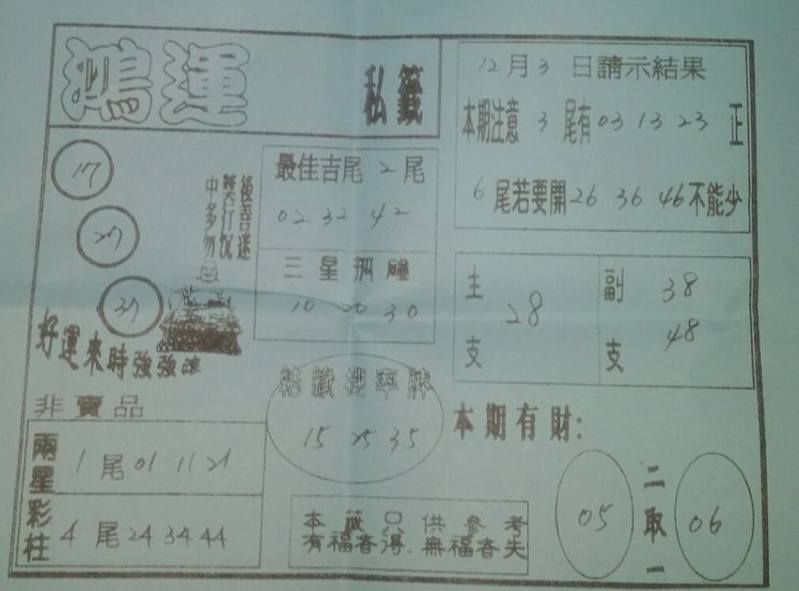 鴻運
私籤
12月3日請示結果
本期注意 3 尾有 03 13 23 正
6 尾若要開 26 36 46 不能少
17
27
37
後善迷
獎行沉
中多勿
最佳吉尾 2 尾
02 32 42
三星孤碰
10 20 30
主支 28
副支 38 48
好運來時強強滾
非賣品
兩星彩柱
1 尾 01 11 21
4 尾 24 34 44
結籤機率牌
15 25 35
本期有財:
05 二取一 06
本籤只供參考
有福者得.無福者失